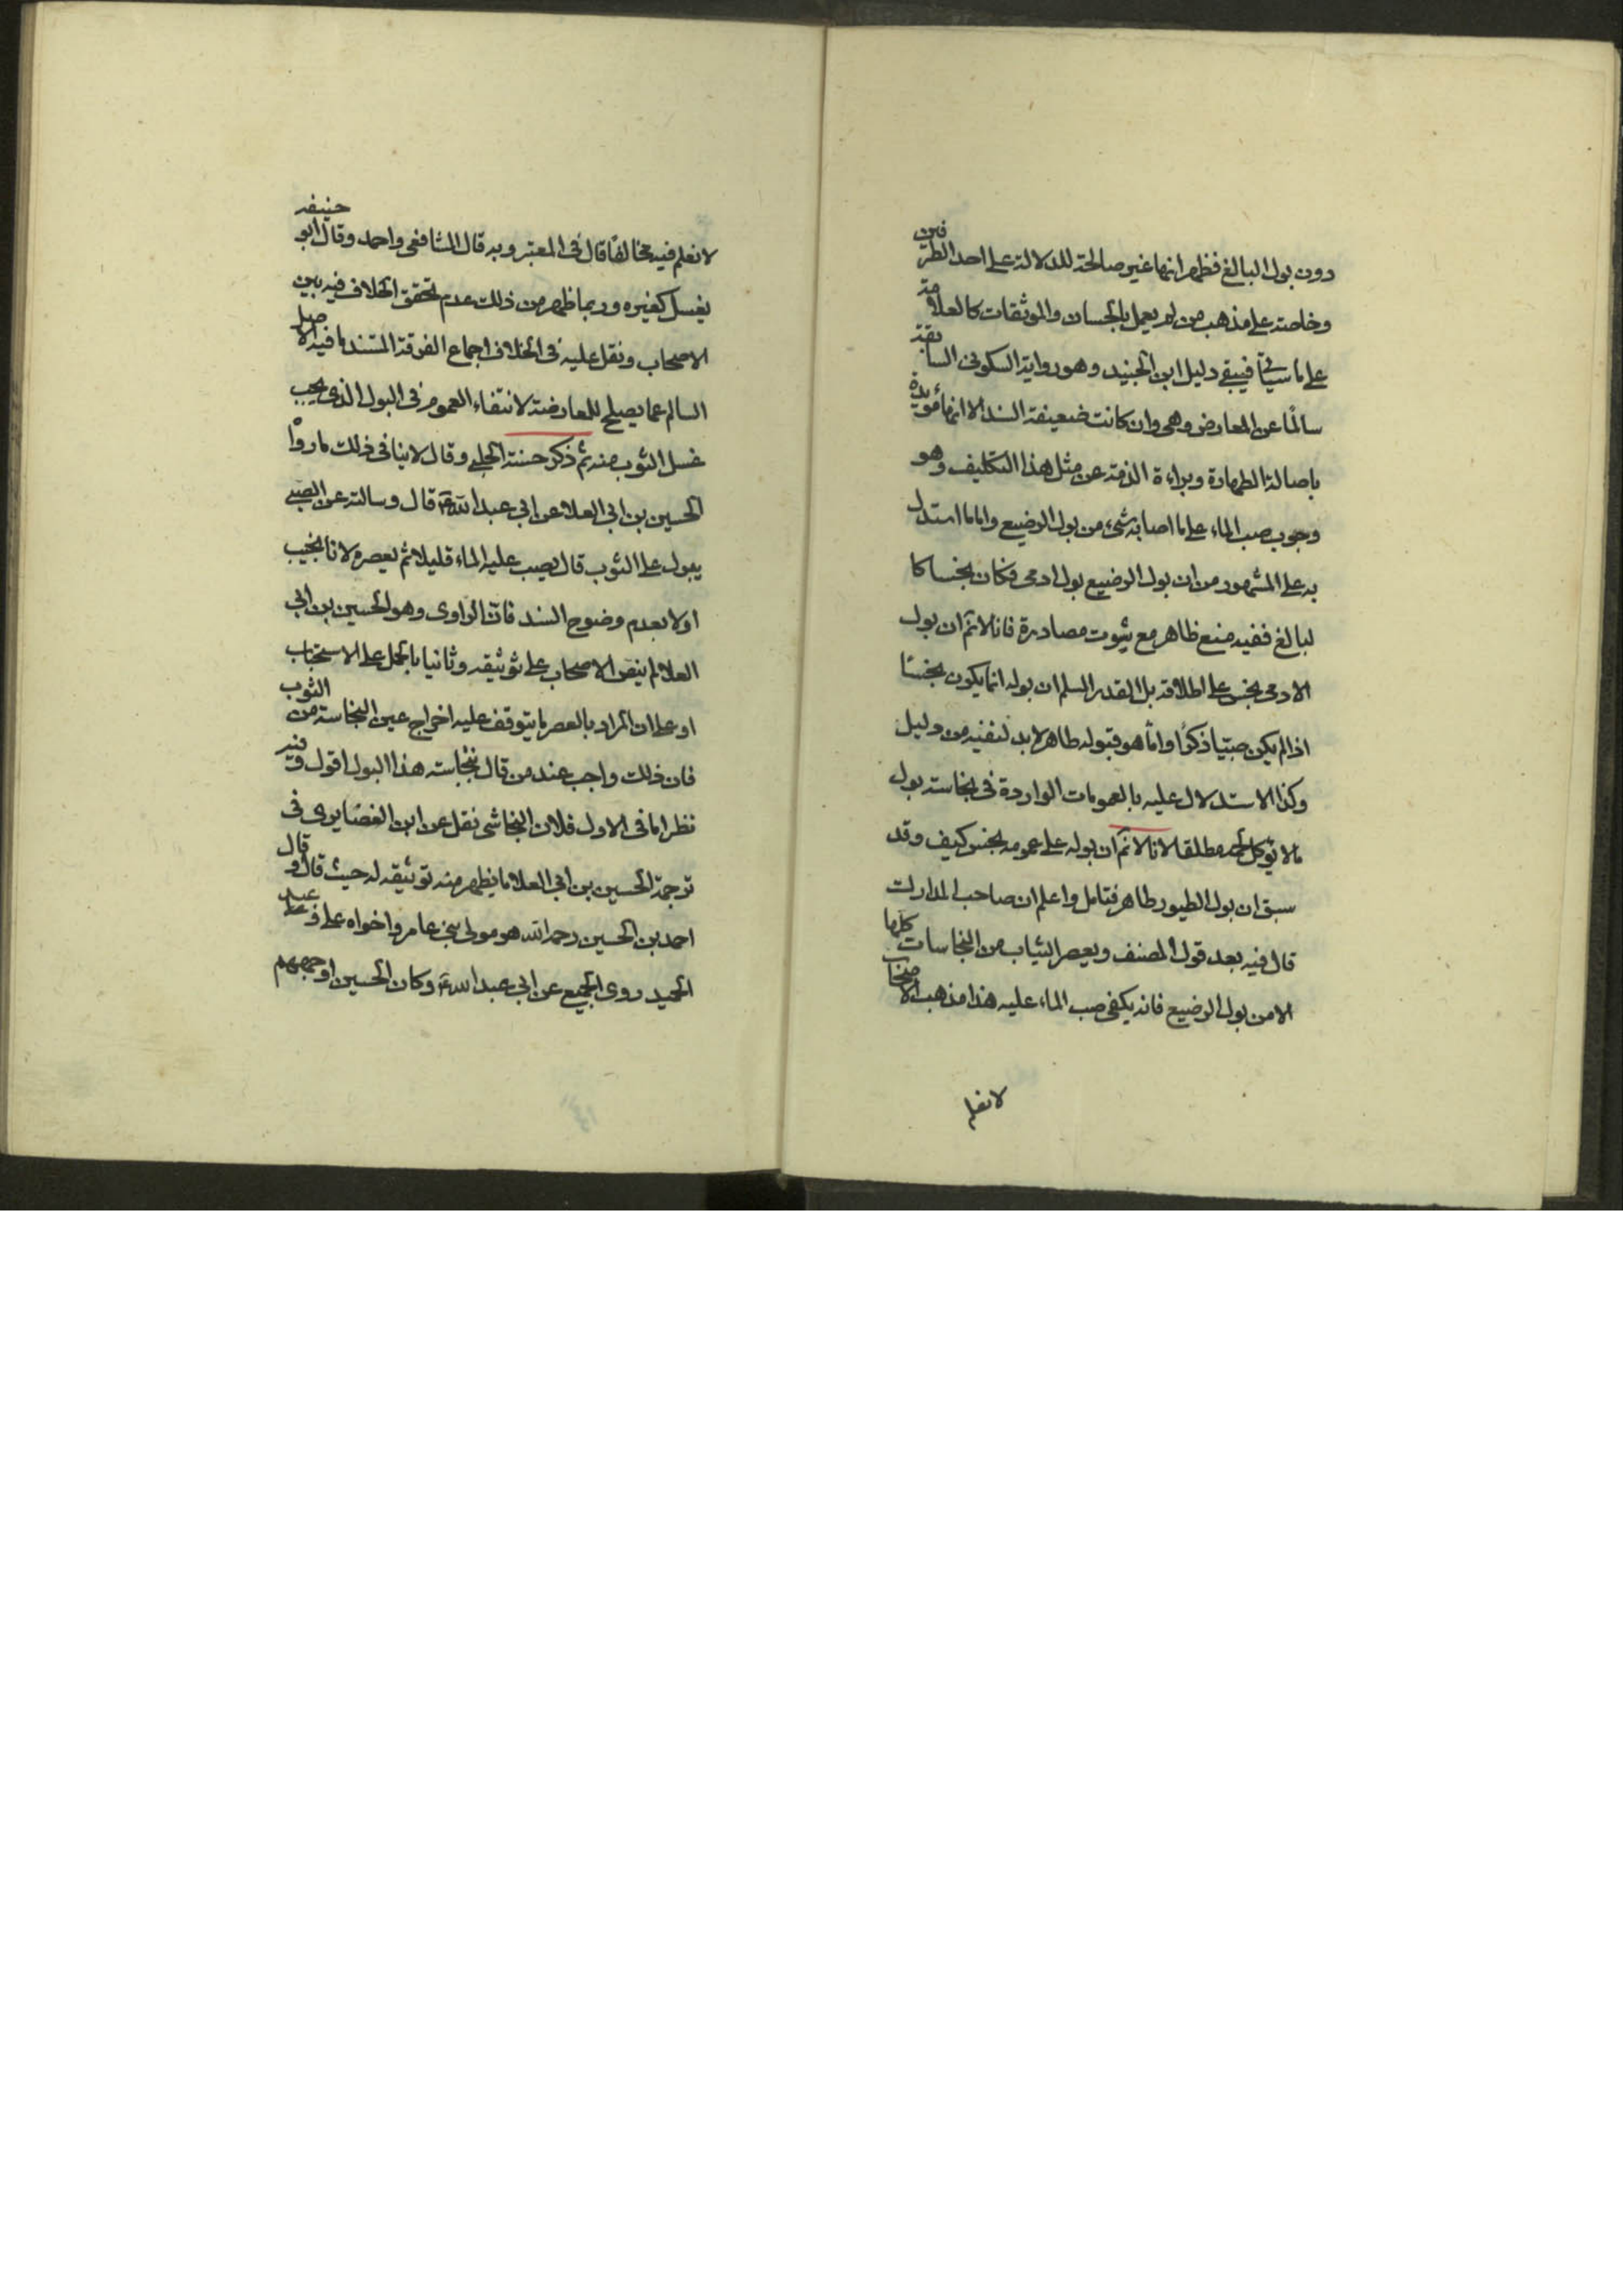 دون بول البالغ فظهر انها غير صالحة للدلالة على احد الطرفين
وخاصة على مذهب من لم يعمل بالحسان والموثقات كالعلامة
على ما سيأتي فيبقى دليل ابن الجنيد وهو رواية السكوني السابقة
سالما عن المعارض وهي وان كانت ضعيفة السند الا انها مؤيدة
باصالة الطهارة وبراءة الذمة عن مثل هذا التكليف وهو
وجوب صب الماء على ما اصابه شيء من بول الرضيع واما ما استدل
به على المشهور من ان بول الرضيع بول ادمي فكان نجسا كا
لبالغ ففيه منع ظاهر مع ثبوت مصادرة فانا لا نم ان بول
الادمي نجس على اطلاقه بل القدر المسلم ان بوله انما يكون نجسا
اذا لم يكن صبيا ذكرا واما هو فبوله طاهر لا بد لنفيه من دليل
وكذا الاستدلال عليه بالعمومات الواردة في نجاسة بول
مالا يؤكل لحمه مطلقا لانا لا نم ان بوله على عمومه نجس كيف وقد
سبق ان بول الطيور طاهر فتامل واعلم ان صاحب المدارك
قال فيه بعد قول المصنف ويعصر الثياب من النجاسات كلها
الا من بول الرضيع فانه يكفي صب الماء عليه هذا مذهب الاصحاب
لا نعلم
لا نعلم فيه مخالفا قال في المعتبر وبه قال الشافعي واحمد وقال ابو حنيفه
يغسل كغيره وربما ظهر من ذلك عدم تحقق الخلاف فيه بين
الاصحاب ونقل عليه في الخلاف اجماع الفرقة المستند ما فيه الاصل
السالم عما يصلح للمعارضة لانتفاء العموم في البول الذي يجب
غسل الثوب منه ثم ذكر حسنة الحلبي وقال لا ينافي ذلك ما رواه
الحسين بن ابي العلا عن ابي عبد الله ع قال وسالته عن الصبي
يبول على الثوب قال يصب عليه الماء قليلا ثم يعصره لانا نجيب
اولا بعدم وضوح السند فان الراوي وهو الحسين بن ابي
العلا لم ينص الاصحاب على توثيقه وثانيا بالحمل على الاستحباب
او على ان المراد بالعصر ما يتوقف عليه اخراج عين النجاسة من الثوب
فان ذلك واجب عند من قال بنجاسته هذا البول اقول وفيه
نظر اما في الاول فلان النجاشي نقل عن ابن الغضايري في
ترجمة الحسين بن ابي العلا ما يظهر منه توثيقه له حيث قال وقال
احمد بن الحسين رحمه الله هو مولى بني عامر واخواه علي وعبد
الحميد روى الجميع عن ابي عبد الله ع وكان الحسين اوجههم